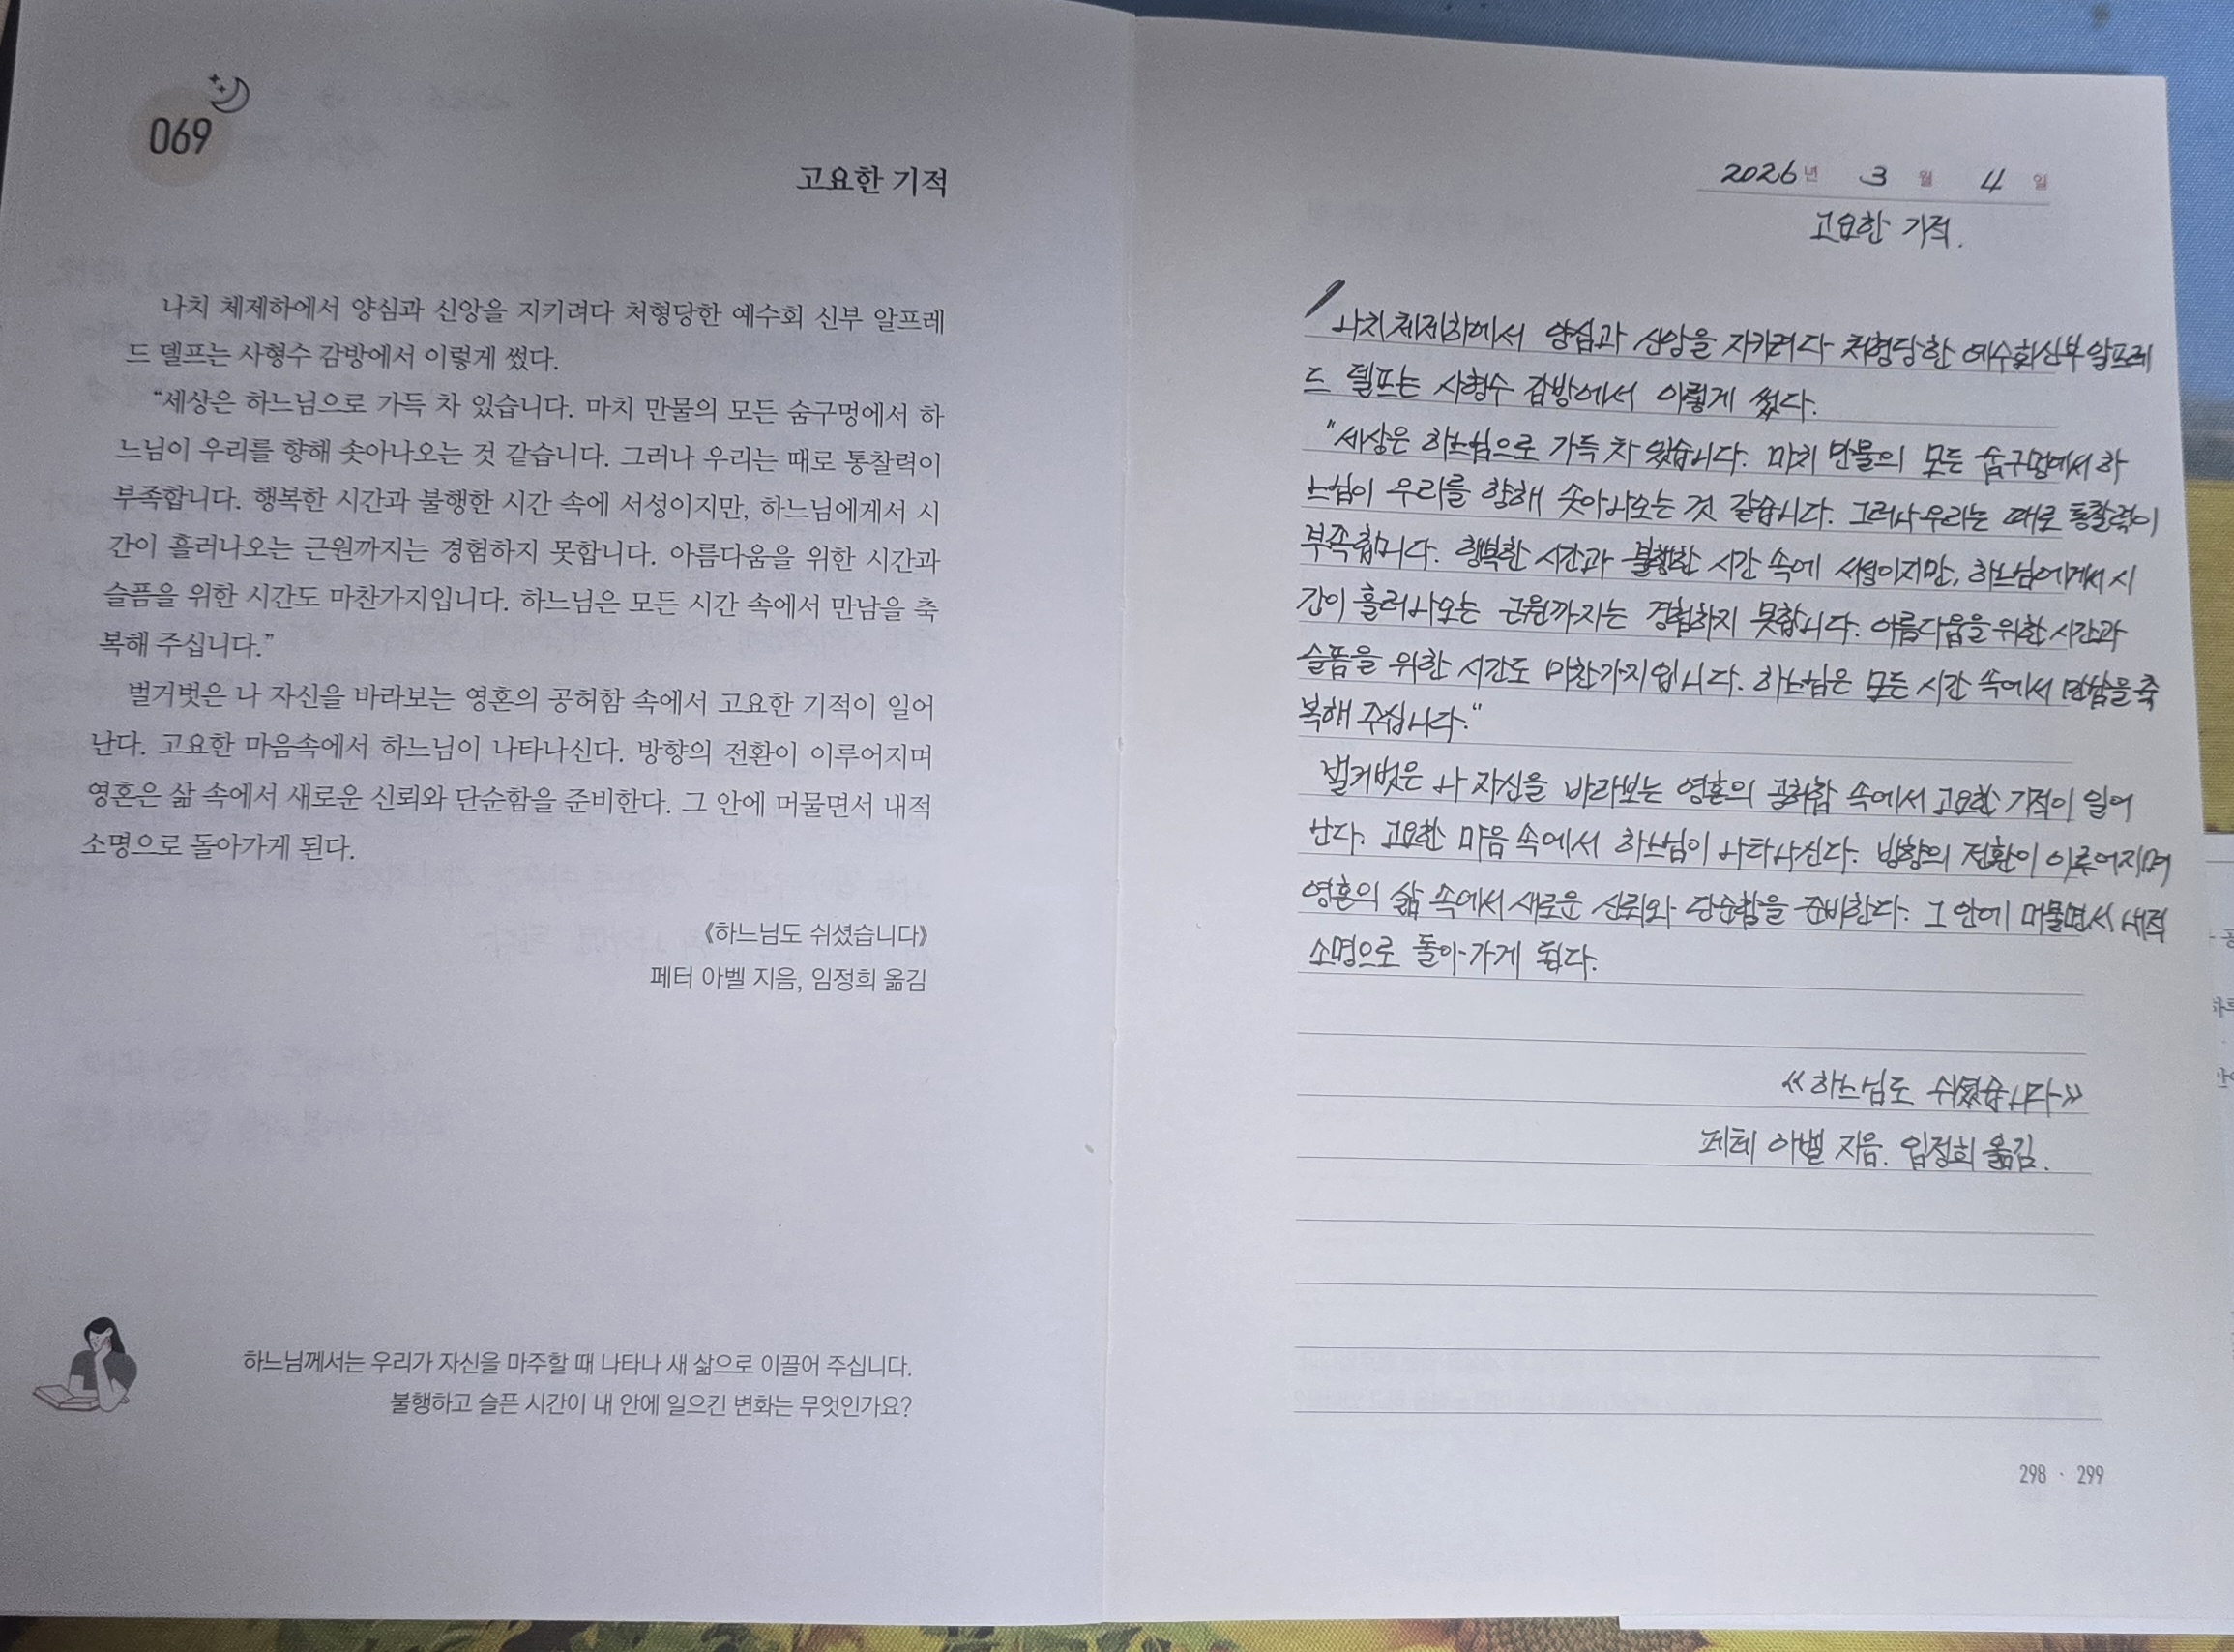 069
고요한 기적
나치 체제하에서 양심과 신앙을 지키려다 처형당한 예수회 신부 알프레
드 델프는 사형수 감방에서 이렇게 썼다.
“세상은 하느님으로 가득 차 있습니다. 마치 만물의 모든 숨구멍에서 하
느님이 우리를 향해 솟아나오는 것 같습니다. 그러나 우리는 때로 통찰력이
부족합니다. 행복한 시간과 불행한 시간 속에 서성이지만, 하느님에게서 시
간이 흘러나오는 근원까지는 경험하지 못합니다. 아름다움을 위한 시간과
슬픔을 위한 시간도 마찬가지입니다. 하느님은 모든 시간 속에서 만남을 축
복해 주십니다.”
벌거벗은 나 자신을 바라보는 영혼의 공허함 속에서 고요한 기적이 일어
난다. 고요한 마음속에서 하느님이 나타나신다. 방향의 전환이 이루어지며
영혼은 삶 속에서 새로운 신뢰와 단순함을 준비한다. 그 안에 머물면서 내적
소명으로 돌아가게 된다.
《하느님도 쉬셨습니다》
페터 아벨 지음, 임정희 옮김
하느님께서는 우리가 자신을 마주할 때 나타나 새 삶으로 이끌어 주십니다.
불행하고 슬픈 시간이 내 안에 일으킨 변화는 무엇인가요?
2026년 3월 4일
고요한 기적.
나치 체제하에서 양심과 신앙을 지키려다 처형당한 예수회 신부 알프레
드 델프는 사형수 감방에서 이렇게 썼다.
"세상은 하느님으로 가득 차 있습니다. 마치 만물의 모든 숨구멍에서 하
느님이 우리를 향해 솟아나오는 것 같습니다. 그러나 우리는 때로 통찰력이
부족합니다. 행복한 시간과 불행한 시간 속에 서성이지만, 하느님에게서 시
간이 흘러나오는 근원까지는 경험하지 못합니다. 아름다움을 위한 시간과
슬픔을 위한 시간도 마찬가지입니다. 하느님은 모든 시간 속에서 만남을 축
복해 주십니다."
벌거벗은 나 자신을 바라보는 영혼의 공허함 속에서 고요한 기적이 일어
난다. 고요한 마음 속에서 하느님이 나타나신다. 방향의 전환이 이루어지며
영혼의 삶 속에서 새로운 신뢰와 단순함을 준비한다. 그 안에 머물면서 내적
소명으로 돌아가게 된다.
《하느님도 쉬셨습니다》
페테 아벨 지음. 임정희 옮김.
298 · 299